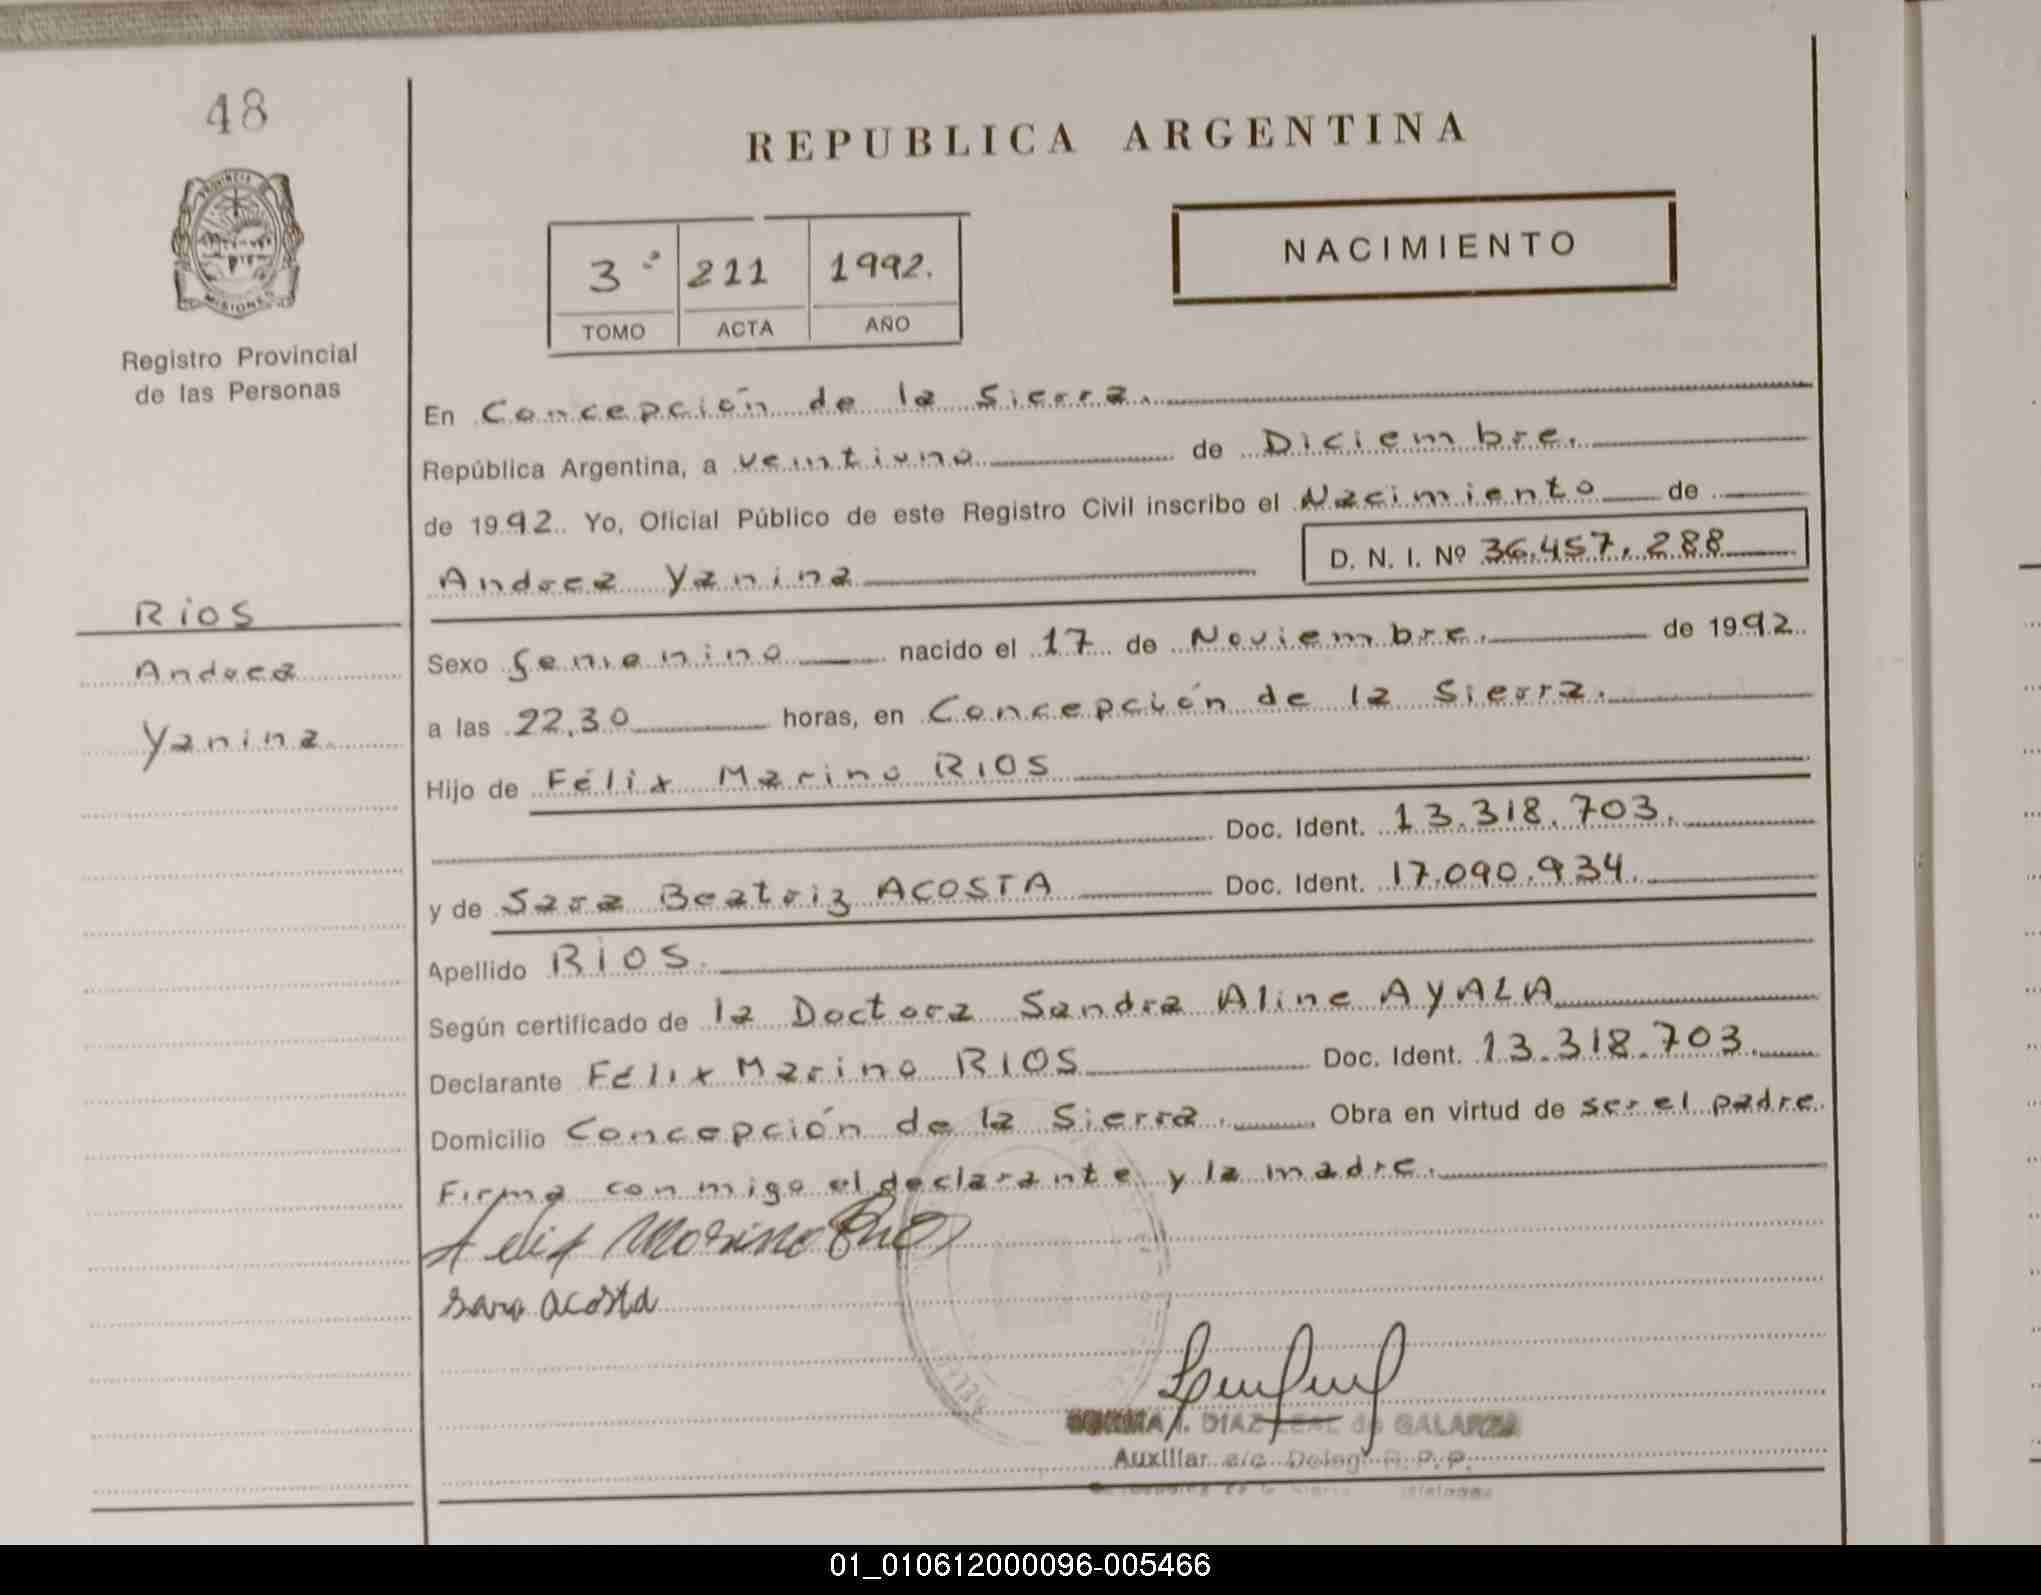 48
PROVINCIA DE
MISIONES
Registro Provincial
de las Personas
REPUBLICA ARGENTINA
3º 211 1992.
TOMO ACTA AÑO
NACIMIENTO
En Concepción de la Sierra.
República Argentina, a veintiuno de Diciembre.
de 1992. Yo, Oficial Público de este Registro Civil inscribo el Nacimiento de
Andrea Yanina D. N. I. Nº 36.457.288
RIOS
Andrea
Yanina
Sexo femenino nacido el 17 de Noviembre. de 1992.
a las 22,30 horas, en Concepción de la Sierra.
Hijo de Félix Marino RIOS
Doc. Ident. 13.318.703.
y de Sara Beatriz ACOSTA Doc. Ident. 17.090.934.
Apellido RIOS.
Según certificado de la Doctora Sandra Aline AYALA
Declarante Félix Marino RIOS Doc. Ident. 13.318.703.
Domicilio Concepción de la Sierra. Obra en virtud de ser el padre.
Firma con migo el declarante y la madre.
Felix Marino Rio
sara acosta
I. DIAZ LEAL de GALARZA
Auxiliar a/c Deleg. R.P.P.
01_010612000096-005466